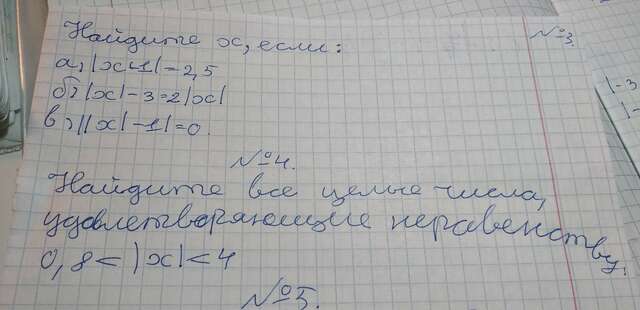 Найдите x, если: №3.
а) |x+1| - 2,5
б) |x| - 3 = 2|x|
в) ||x| - 1| = 0
№4.
Найдите все целые числа,
удовлетворяющие неравенству.
0,8 < |x| < 4
№5.
|-3
|-